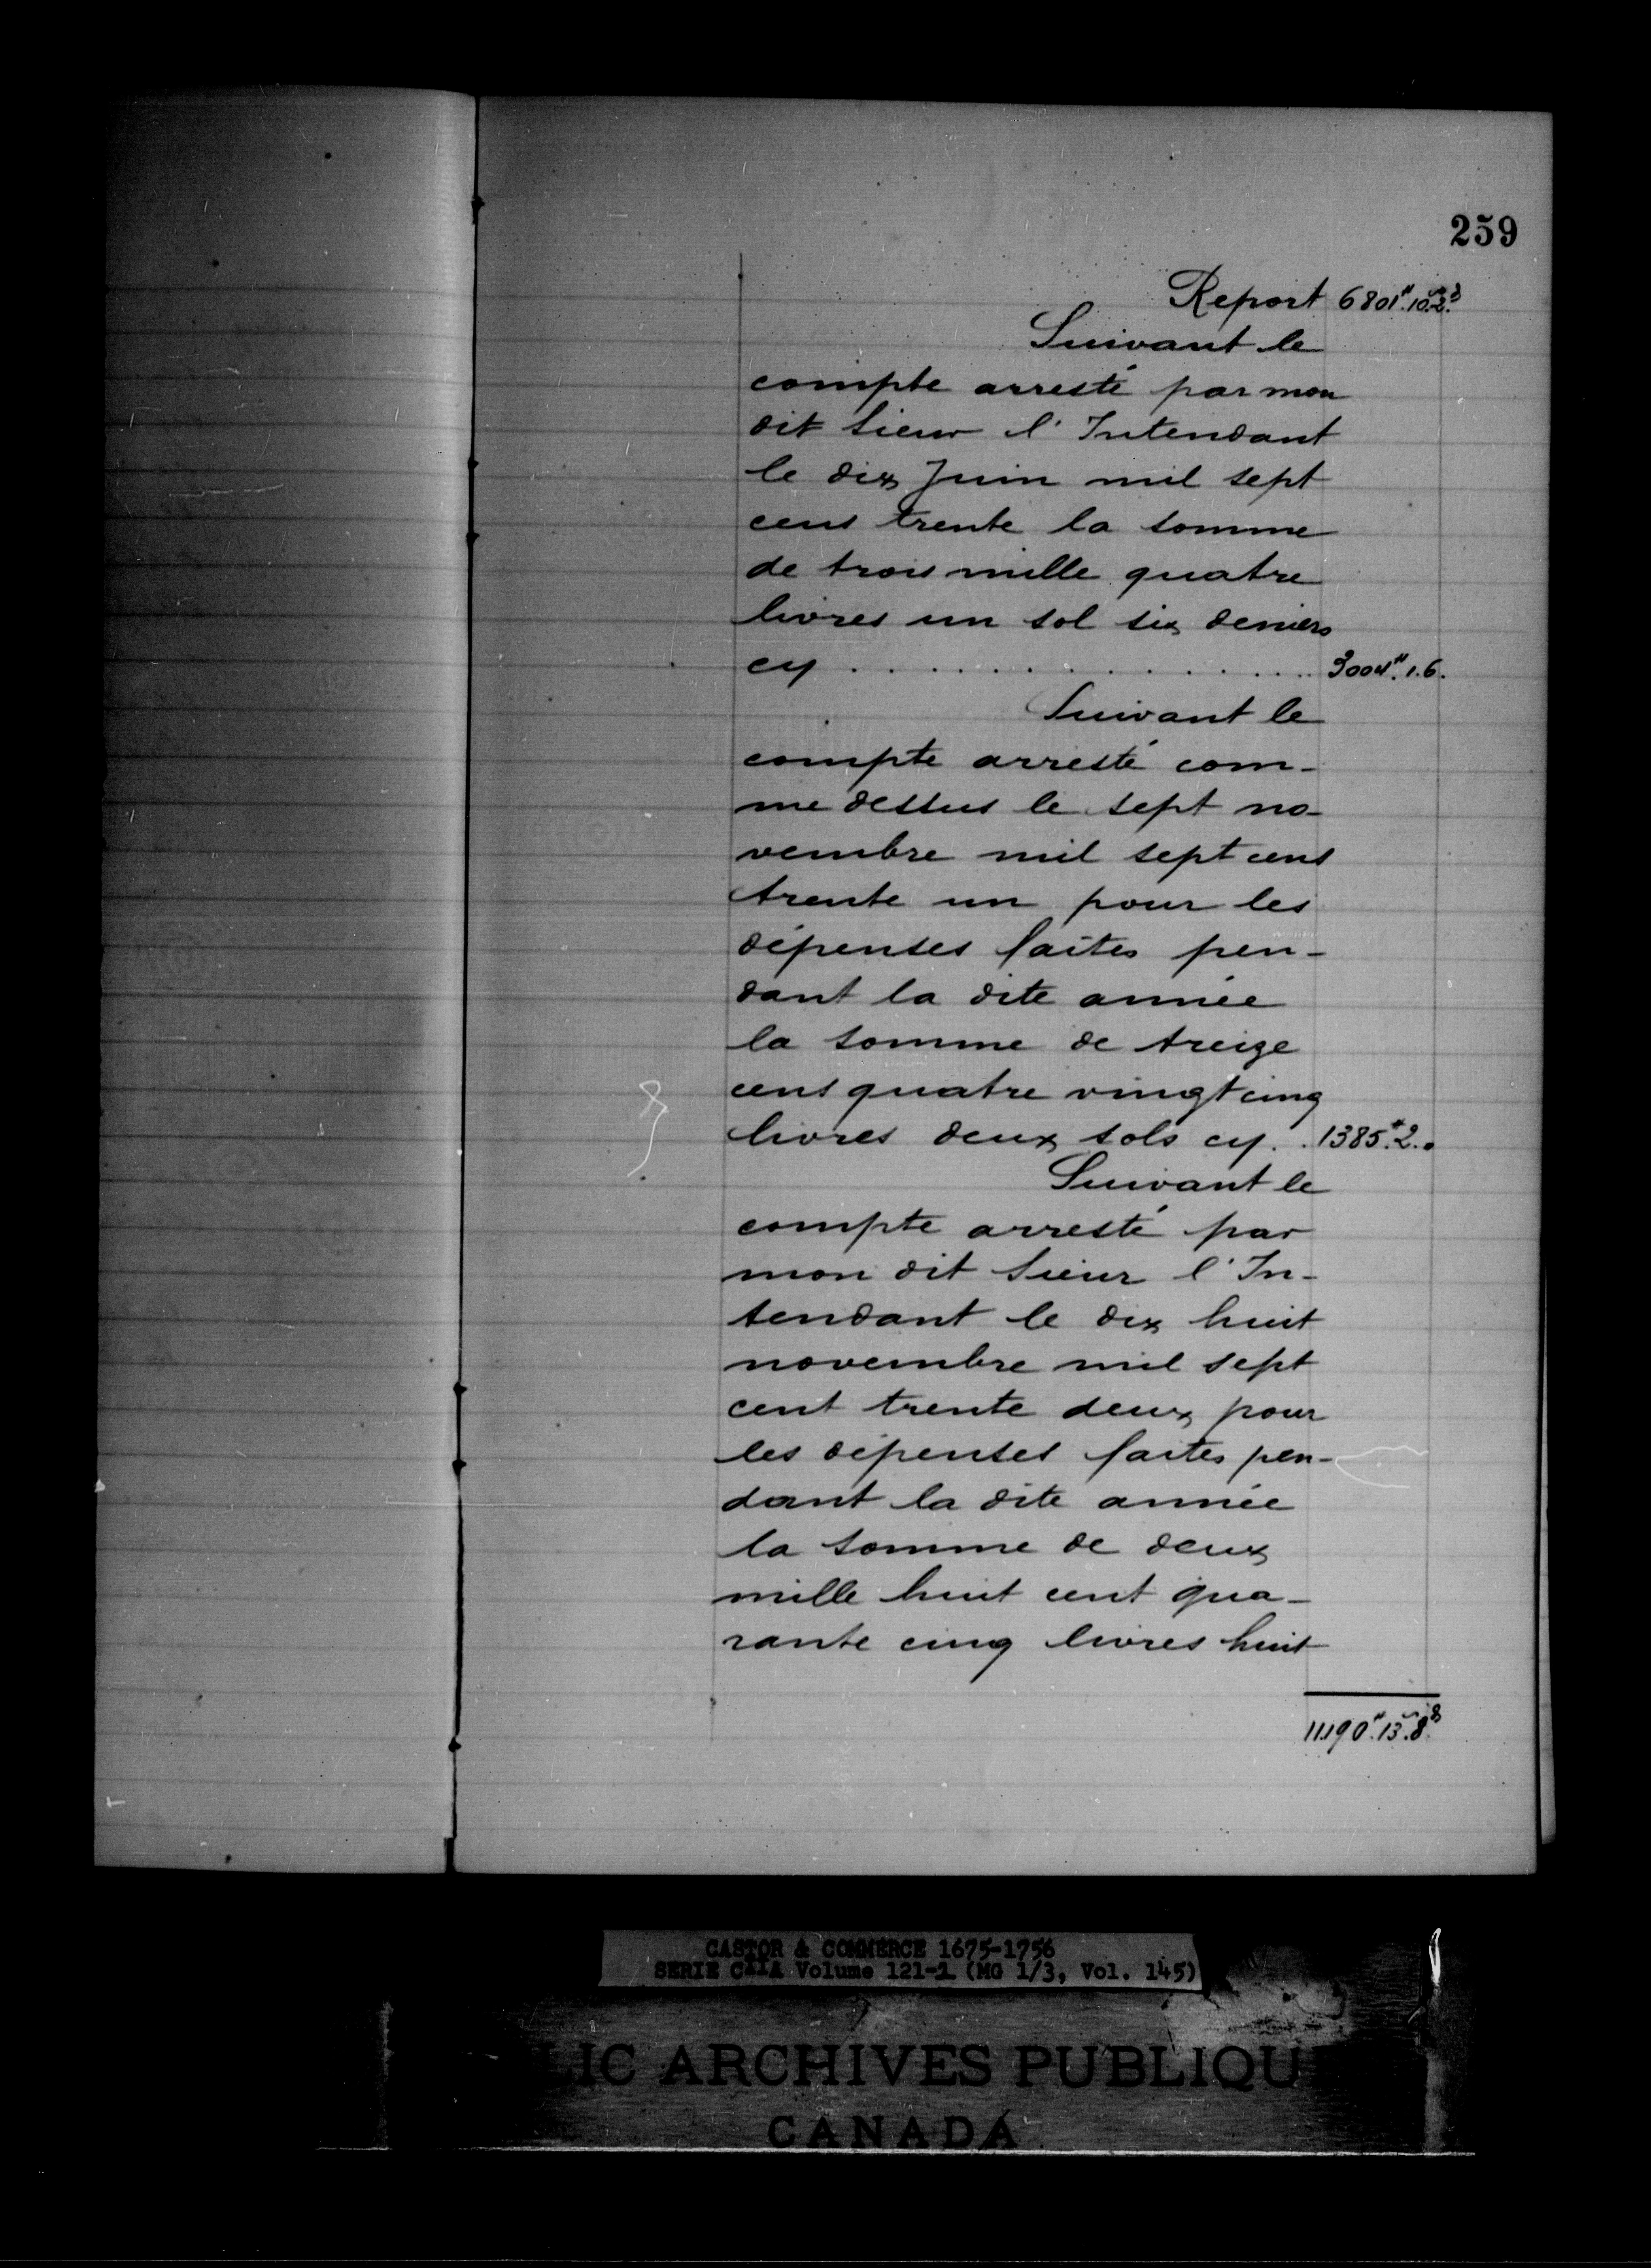 259
Report 6801#.10s.2d.
Suivant le
compte arresté par mon
dit Sieur l'Intendant
le dix Juin mil sept
cens trente la somme
de trois mille quatre
livres un sol six deniers
cy . . . . . . . . . . . . . . . . 3004#.1.6.
Suivant le
compte arresté com-
me dessus le sept no-
vembre mil sept cens
trente un pour les
dépenses faites pen-
dant la dite année
la somme de treize
cens quatre vingt cinq
livres deux sols cy . . 1385#.2.0
Suivant le
compte arresté par
mon dit Sieur l'In-
tendant le dix huit
novembre mil sept
cent trente deux pour
les dépenses faites pen-
dant la dite année
la somme de deux
mille huit cent qua-
rante cinq livres huit
11190#.13s.8d
CASTOR & COMMERCE 1675-1756
SERIE C11A Volume 121-1 (MG 1/3, Vol. 145)
LIC ARCHIVES PUBLIQU
CANADA